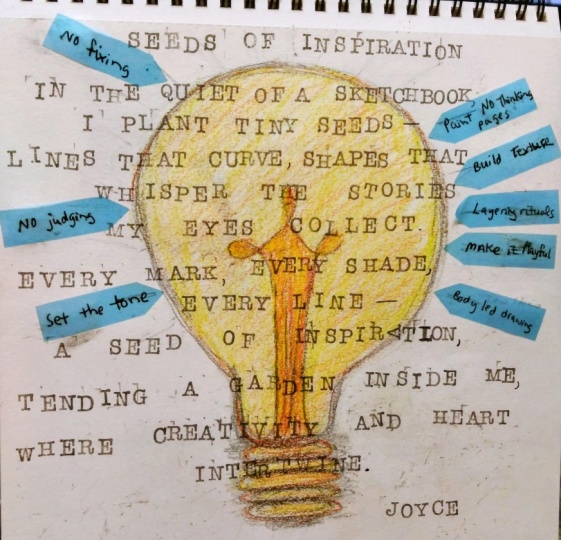 SEEDS OF INSPIRATION
IN THE QUIET OF A SKETCHBOOK,
I PLANT TINY SEEDS
LINES THAT CURVE, SHAPES THAT
WHISPER THE STORIES
MY EYES COLLECT.
EVERY MARK, EVERY SHADE,
EVERY LINE —
A SEED OF INSPIRATION,
TENDING A GARDEN INSIDE ME,
WHERE CREATIVITY AND HEART
INTERTWINE.
JOYCE
No fixing
No judging
Set the tone
Paint No Thinking
pages
Build Texture
Layering rituals
MAKE it Playful
Body led drawing